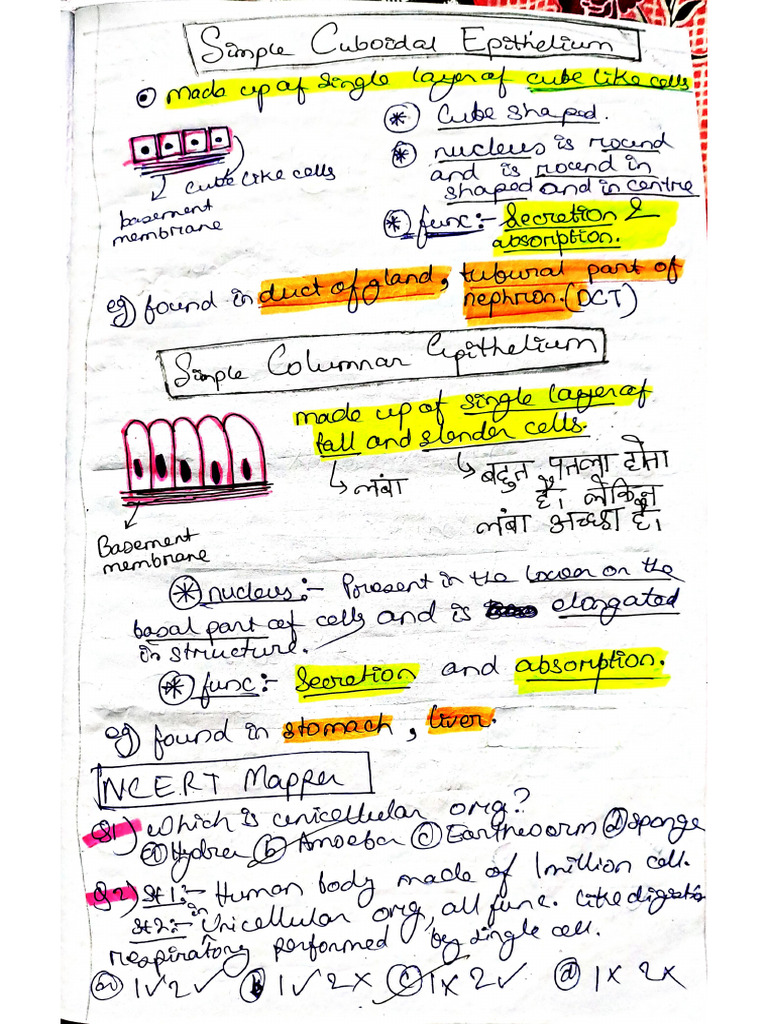 Simple Cuboidal Epithelium
made up of single layer of cube like cells
* Cube shaped.
* nucleus is round
and is round in
shaped and in centre
cube like cells
basement
membrane
* func:- Secretion &
absorption.
eg) found in duct of gland, tubural part of
nephron. (DCT)
Simple Columnar Epithelium
made up of single layer of
tall and slender cells.
→ लंबा → बहुत पतला होता
है। लेकिन
लंबा अच्छा है।
Basement
membrane
* nucleus:- Present in the lower or the
basal part of cells and is elongated
in structure.
* func:- Secretion and absorption.
eg) found in stomach, liver.
NCERT Mapper
Q1) Which is unicellular org?
a) Hydra b) Amoeba c) Earthworm d) Sponge
Q2) St 1:- Human body made of 1 million cell.
St 2:- in Unicellular org, all func. like digestio
respiratory performed by single cell.
a) 1✓ 2✓ b) 1✓ 2× c) 1× 2✓ d) 1× 2×